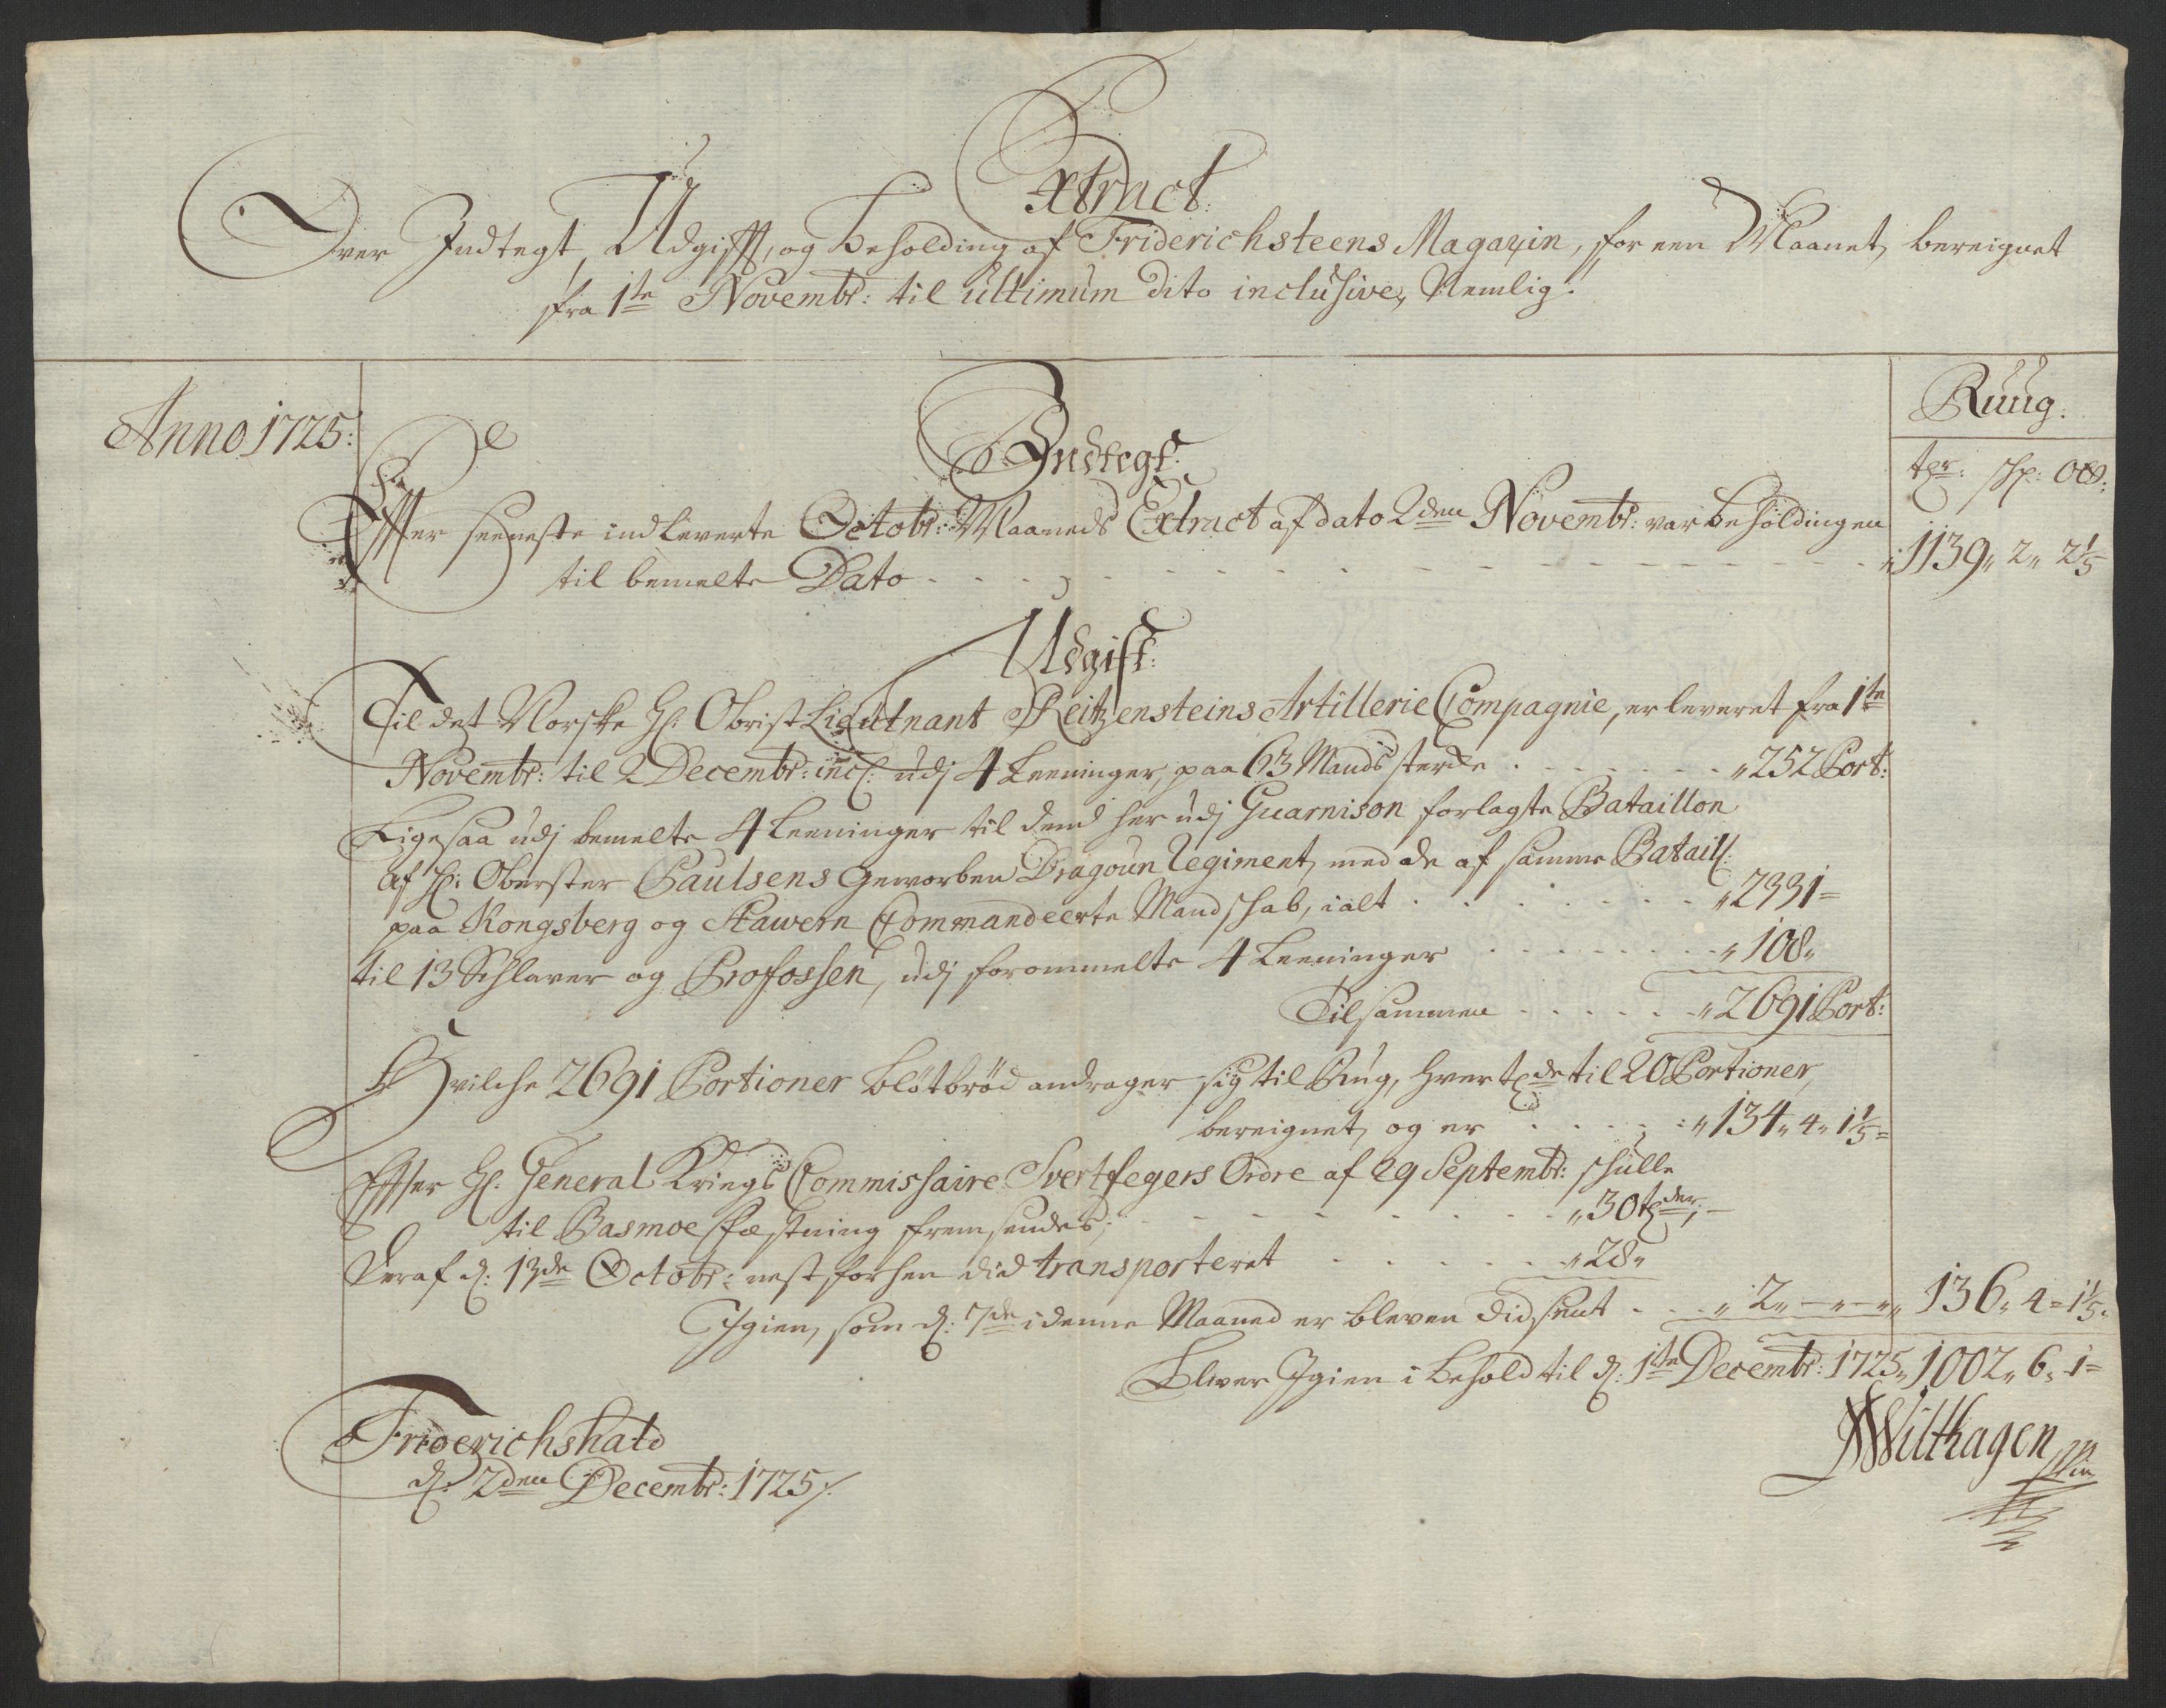 Extract.
Over Indtegt, Udgifft, og Beholding af Friderichsteens Magazin, for een Maanet, bereignet
fra 1te Novembr: til ultimum dito inclusive, Nemlig.
Anno 1725:
Ruug.
Indtegt.
tdr: skp: 
Effter seeneste indleverte Octobr: Maaneds Extract af dato 2den Novembr: var beholdingen
til bemelte Dato - - - „1139„ 2„ 2 1/5
Udgift:
Til det Norske Hr: Obrist Lieutnant Reitzensteins Artillerie Compagnie, er leveret fra 1te
Novembr: til 2 Decembr: incl: udj 4 Leeninger, paa 63 Mands sterke . . . „252 Port:
Ligesaa udj bemelte 4 Leeninger til dend her udj Guarnison forlagte Bataillon
af Hr: Oberster Paulsens Geworben Dragoun Regiment, med de af samme Bataill:
paa Kongsberg og Stawern Commandeerte Mandskab, ialt . . . „2331=
til 13 Schlaver og Profossen, udj forommelte 4 Leeninger . . . „108„
Tilsammen . . . „2691 Port:
Hvilche 2691 Portioner bløtbrød andrager sig til Rug, hver tde til 20 Portioner,
bereignet, og er . . . „134„ 4„ 1 1/5=
Effter Hr: General Kriegs Commissaire Svertfegers Ordre af 29 Septembr: skulle
til Basmoe Fæstning fremsendes; - - - „30 tder; -
Deraf d: 13de Octobr: nest forhen did transporteret . . . „28„
Igien, som d: 7de i denne Maaned er bleven did sent - - - „2„ -„-„ 136„ 4= 1 1/5„
Bliver Igien i behold til d: 1te Decembr: 1725„ 1002„ 6„ 1=
Friderichshald
d: 2den Decembr: 1725/.
Wilthagen